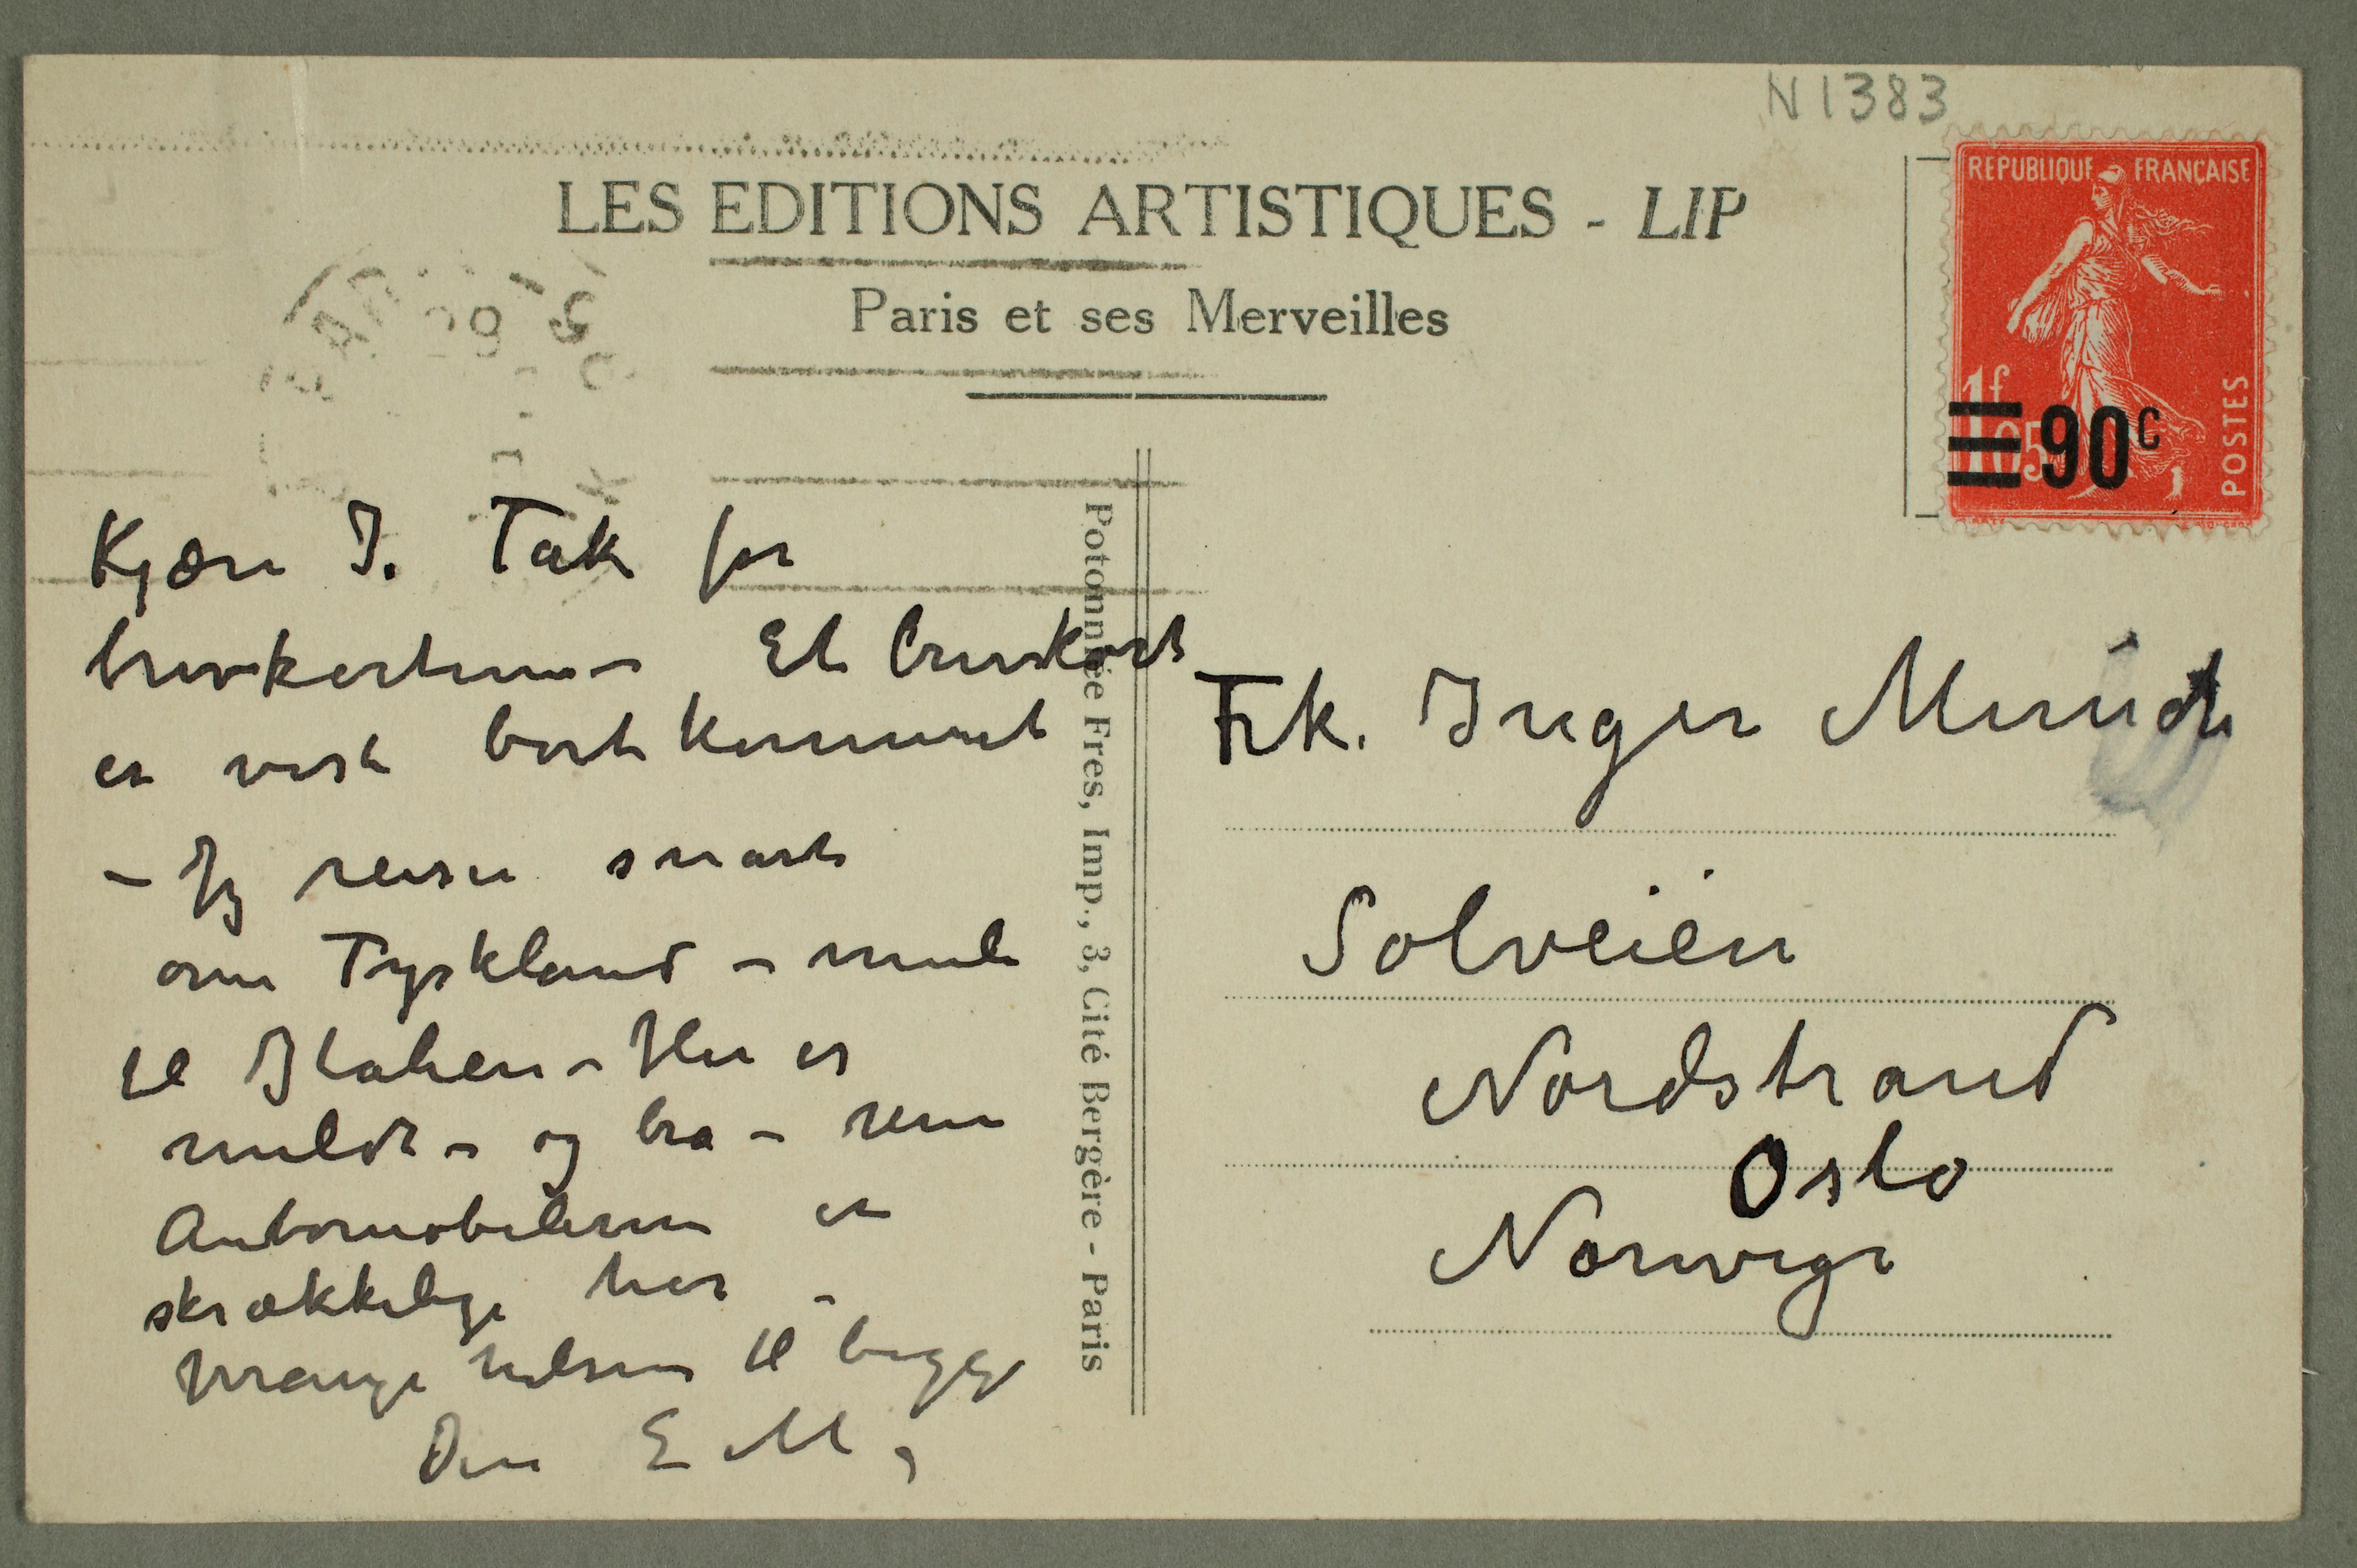 N 1383
REPUBLIQUE FRANÇAISE
1f
05
90c
POSTES
LES EDITIONS ARTISTIQUES - LIP
Paris et ses Merveilles
Kjære I. Tak for
brevkortene – Et brevkort
er vist bortkommet
– Jeg reiser snart
om Tyskland – mul
til Italien – Her er
mildt – og bra – men
Automobilerne er
skrækkelige her –
Mange hilsener til begge
Din E M,
Potonniée Fres, Imp., 3, Cité Bergère - Paris
Frk. Inger Munch
Solveien
Nordstrand
Oslo
Norvège